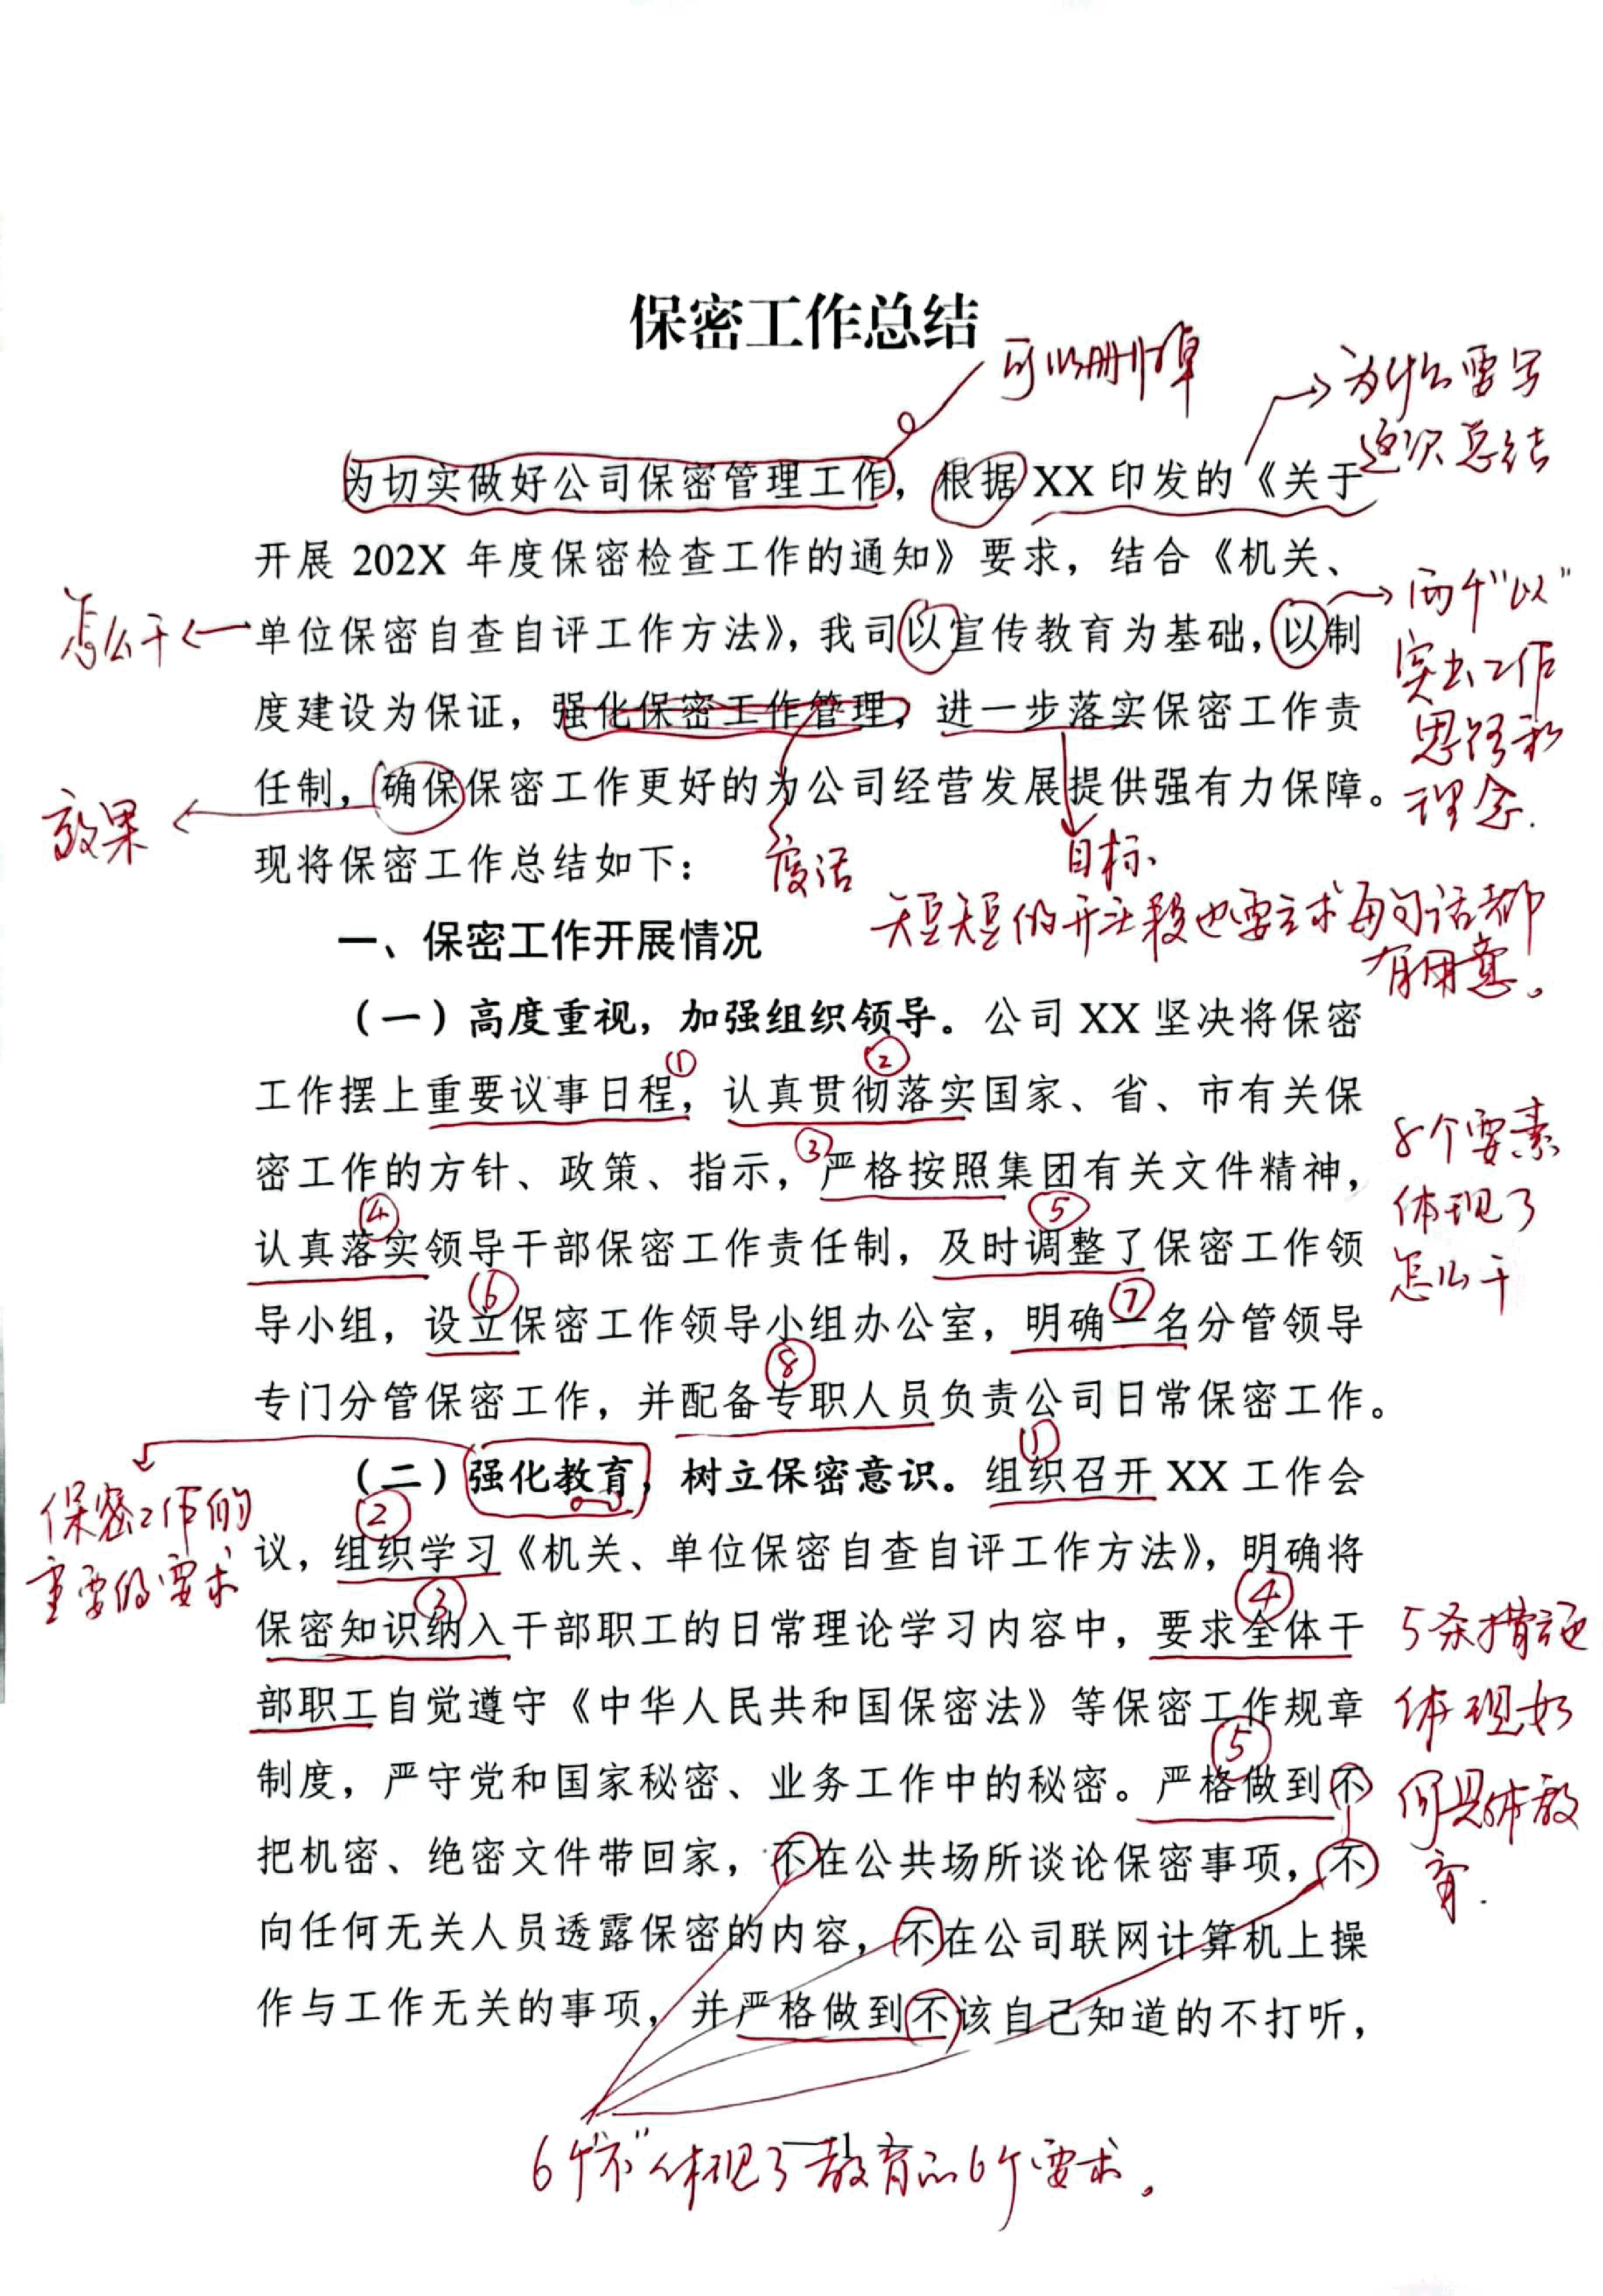 保密工作总结
可以删掉
为什么要写
这次总结
为切实做好公司保密管理工作，根据 XX 印发的《关于
开展 202X 年度保密检查工作的通知》要求，结合《机关、
单位保密自查自评工作方法》，我司以宣传教育为基础，以制
度建设为保证，强化保密工作管理，进一步落实保密工作责
任制，确保保密工作更好的为公司经营发展提供强有力保障。
现将保密工作总结如下：
怎么干
两个“以”
突出工作
思路和
理念.
效果
废话
目标
短短的开头段也要求每句话都
有用意。
一、保密工作开展情况
（一）高度重视，加强组织领导。公司 XX 坚决将保密
① ②
工作摆上重要议事日程，认真贯彻落实国家、省、市有关保
③
密工作的方针、政策、指示，严格按照集团有关文件精神，
④ ⑤
认真落实领导干部保密工作责任制，及时调整了保密工作领
⑥ ⑦
导小组，设立保密工作领导小组办公室，明确一名分管领导
⑧
专门分管保密工作，并配备专职人员负责公司日常保密工作。
8个要素
体现了
怎么干
①
（二）强化教育，树立保密意识。组织召开 XX 工作会
②
议，组织学习《机关、单位保密自查自评工作方法》，明确将
③ ④
保密知识纳入干部职工的日常理论学习内容中，要求全体干
部职工自觉遵守《中华人民共和国保密法》等保密工作规章
⑤
制度，严守党和国家秘密、业务工作中的秘密。严格做到不
把机密、绝密文件带回家，不在公共场所谈论保密事项，不
向任何无关人员透露保密的内容，不在公司联网计算机上操
作与工作无关的事项，并严格做到不该自己知道的不打听，
保密工作的
重要的要求
5条措施
体现如
何具体教
育.
— 1 —
6个“不”体现了教育的6个要求。